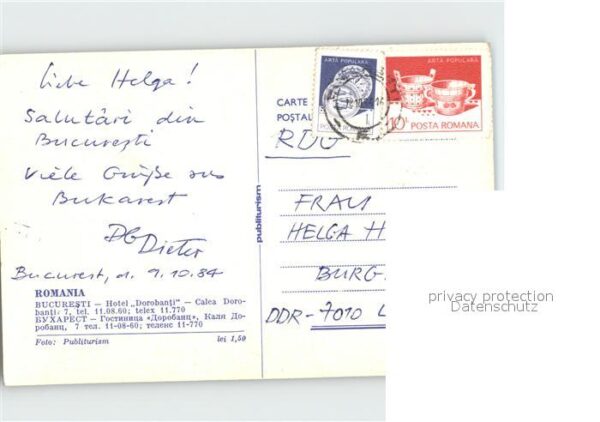 Liebe Helga!
Salutări din
București
Viele Grüße aus
Bukarest
Dieter
Bucarest, d. 9.10.84
ROMANIA
BUCUREȘTI — Hotel „Dorobanți" — Calea Doro-
banți 7, tel. 11.08.60; telex 11.770
БУХАРЕСТ — Гостиница «Доробанц», Каля До-
робанц, 7 тел. 11-08-60; телекс 11-770
Foto: Publiturism lei 1,50
publiturism
CARTE
POȘTAL
ARTĂ POPULARĂ
ARTĂ POPULARĂ
10L POSTA ROMANA
RDG
FRAU
HELGA H
BURG
DDR-7010 L
privacy protection
Datenschutz